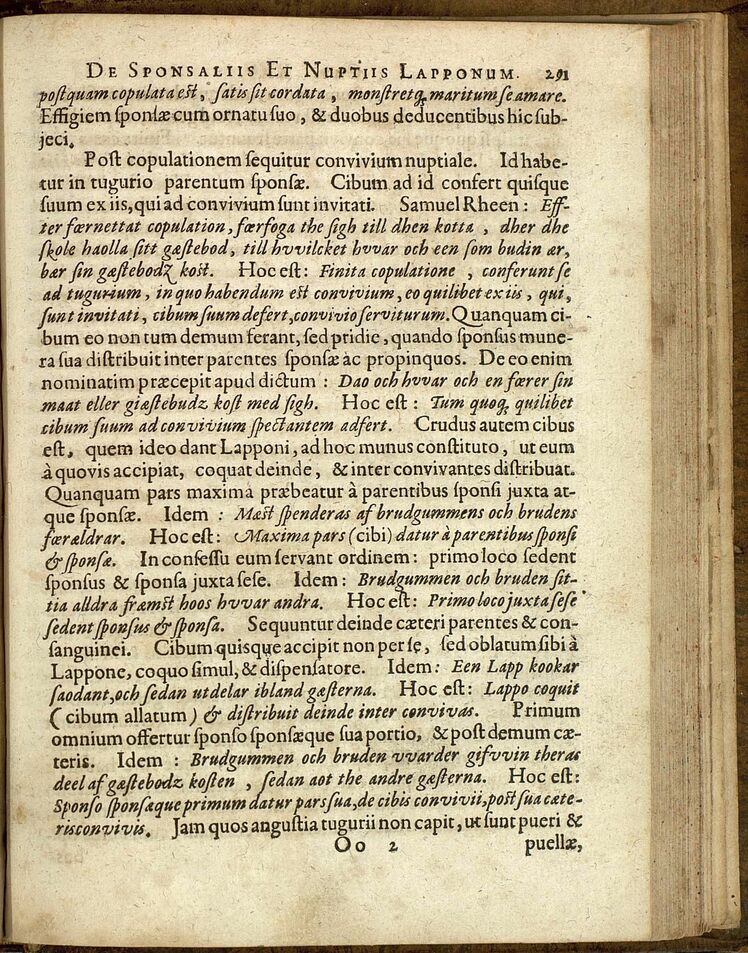 DE SPONSALIIS ET NUPTIIS LAPPONUM. 291
postquam copulata est, satis sit cordata, monstretq; maritum se amare.
Effigiem sponsæ cum ornatu suo, & duobus deducentibus hic sub-
jeci.
Post copulationem sequitur convivium nuptiale. Id habe-
tur in tugurio parentum sponsæ. Cibum ad id confert quisque
suum ex iis, qui ad convivium sunt invitati. Samuel Rheen: Eff-
ter færnettat copulation, færfoga the sigh till dhen kotta, dher dhe
skole haolla sitt gæstebod, till hvvilcket hvvar och een som budin ær,
bær sin gæstebodz kost. Hoc est: Finita copulatione, conferunt se
ad tugurium, in quo habendum est convivium, eo quilibet ex iis, qui,
sunt invitati, cibum suum defert, convivio serviturum. Quanquam ci-
bum eo non tum demum ferant, sed pridie, quando sponsus mune-
ra sua distribuit inter parentes sponsæ àc propinquos. De eo enim
nominatim præcepit apud dictum: Dao och hvvar och en færer sin
maat eller giæstebudz kost med sigh. Hoc est: Tum quoq; quilibet
cibum suum ad convivium spectantem adfert. Crudus autem cibus
est, quem ideo dant Lapponi, ad hoc munus constituto, ut eum
à quovis accipiat, coquat deinde, & inter convivantes distribuat.
Quanquam pars maxima præbeatur à parentibus sponsi juxta at-
que sponsæ. Idem: Mæst spenderas af brudgummens och brudens
færældrar. Hoc est: Maxima pars (cibi) datur à parentibus sponsi
& sponsæ. In confessu eum servant ordinem: primo loco sedent
sponsus & sponsa juxta sese. Idem: Brudgummen och bruden sit-
tia alldra fræmst hoos hvvar andra. Hoc est: Primo loco juxta sese
sedent sponsus & sponsa. Sequuntur deinde cæteri parentes & con-
sanguinei. Cibum quisque accipit non per se, sed oblatum sibi à
Lappone, coquo simul, & dispensatore. Idem: Een Lapp kookar
saodant, och sedan utdelar ibland gæsterna. Hoc est: Lappo coquit
(cibum allatum) & distribuit deinde inter convivas. Primum
omnium offertur sponso sponsæque sua portio, & post demum cæ-
teris. Idem: Brudgummen och bruden vvarder gifvvin theras
deel af gæstebodz kosten, sedan aot the andre gæsterna. Hoc est:
Sponso sponsæque primum datur pars sua, de cibis convivii, post sua cæte-
ris convivis. Jam quos angustia tugurii non capit, ut sunt pueri &
Oo 2 puellæ,